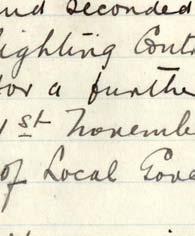 and seconded
Lighting Contr
for a furthe
1st Novembe
of Local Gove